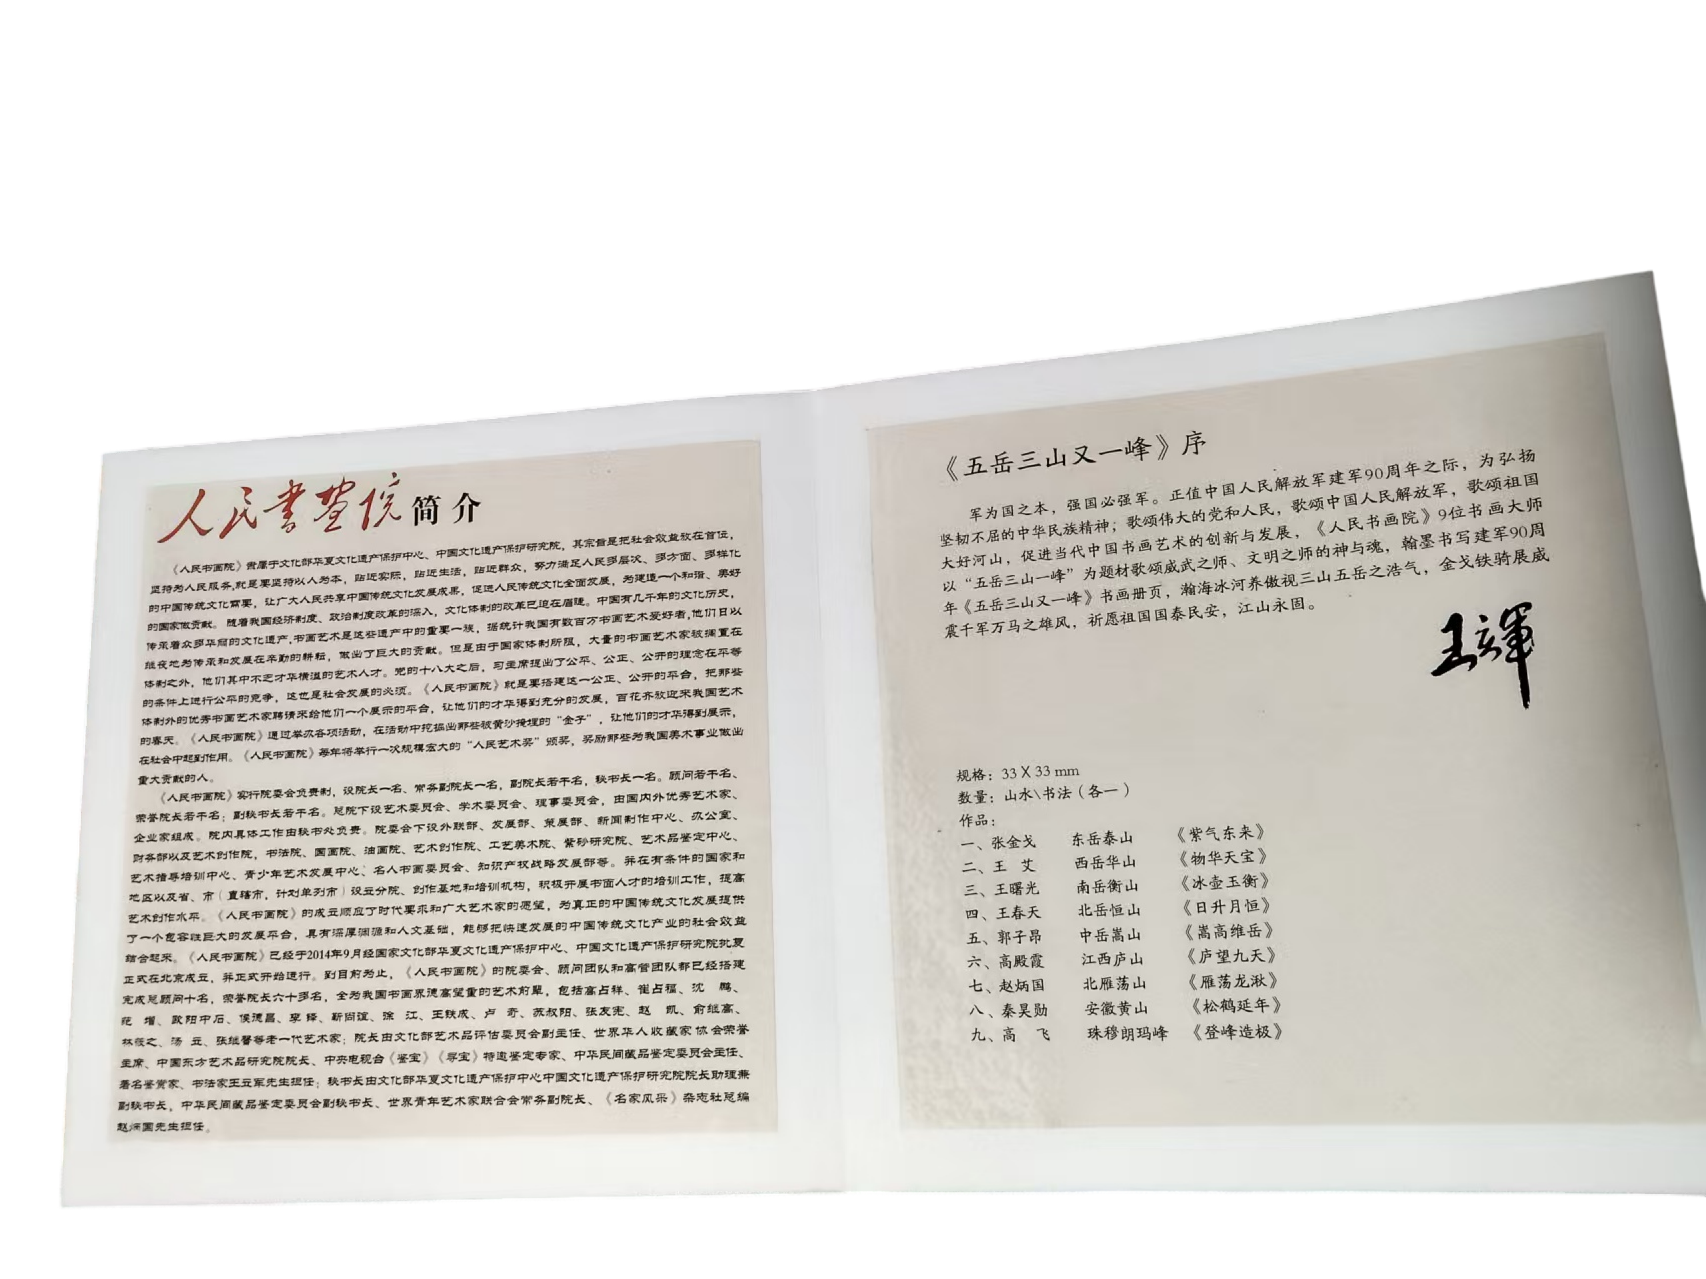 人民书画院简介
《人民书画院》隶属于文化部华夏文化遗产保护中心、中国文化遗产保护研究院，其宗旨是把社会效益放在首位，
坚持为人民服务,就是要坚持以人为本，贴近实际，贴近生活，贴近群众，努力满足人民多层次、多方面、多样化
的中国传统文化需要，让广大人民共享中国传统文化发展成果，促进人民传统文化全面发展，为建造一个和谐、美好
的国家做贡献。随着我国经济制度、政治制度改革的深入，文化体制的改革已迫在眉睫。中国有几千年的文化历史，
传承着众多华丽的文化遗产,书画艺术是这些遗产中的重要一族，据统计我国有数百万书画艺术爱好者,他们日以
继夜地为传承和发展在辛勤的耕耘，做出了巨大的贡献。但是由于国家体制所限，大量的书画艺术家被搁置在
体制之外，他们其中不乏才华横溢的艺术人才。党的十八大之后，习主席提出了公平、公正、公开的理念在平等
的条件上进行公平的竞争，这也是社会发展的必须。《人民书画院》就是要搭建这一公正、公开的平台，把那些
体制外的优秀书画艺术家聘请来给他们一个展示的平台，让他们的才华得到充分的发展，百花齐放迎来我国艺术
的春天。《人民书画院》通过举办各项活动，在活动中挖掘出那些被黄沙掩埋的“金子”，让他们的才华得到展示，
在社会中起到作用。《人民书画院》每年将举行一次规模宏大的“人民艺术奖”颁奖，奖励那些为我国美术事业做出
重大贡献的人。
《人民书画院》实行院委会负责制，设院长一名、常务副院长一名，副院长若干名，秘书长一名。顾问若干名、
荣誉院长若干名；副秘书长若干名。总院下设艺术委员会、学术委员会、理事委员会，由国内外优秀艺术家、
企业家组成。院内具体工作由秘书处负责。院委会下设外联部、发展部、策展部、新闻制作中心、办公室、
财务部以及艺术创作院，书法院、国画院、油画院、艺术创作院、工艺美术院、紫砂研究院、艺术品鉴定中心、
艺术指导培训中心、青少年艺术发展中心、名人书画委员会、知识产权战略发展部等。并在有条件的国家和
地区以及省、市（直辖市，计划单列市）设立分院、创作基地和培训机构，积极开展书画人才的培训工作，提高
艺术创作水平。《人民书画院》的成立顺应了时代要求和广大艺术家的愿望，为真正的中国传统文化发展提供
了一个包容性巨大的发展平台，具有深厚渊源和人文基础，能够把快速发展的中国传统文化产业的社会效益
结合起来。《人民书画院》已经于2014年9月经国家文化部华夏文化遗产保护中心、中国文化遗产保护研究院批复
正式在北京成立，并正式开始运行。到目前为止，《人民书画院》的院委会、顾问团队和高管团队都已经搭建
完成总顾问十名，荣誉院长六十多名，全为我国书画界德高望重的艺术前辈，包括高占祥、崔占福、沈 鹏、
范 增、欧阳中石、侯德昌、李 铎、靳尚谊、涂 江、王铁成、卢 奇、苏叔阳、张友宪、赵 凯、俞继高、
林筱之、汤 立、张继馨等老一代艺术家；院长由文化部艺术品评估委员会副主任、世界华人收藏家协会荣誉
主席、中国东方艺术品研究院院长、中央电视台《鉴宝》《寻宝》特邀鉴定专家、中华民间藏品鉴定委员会主任、
著名鉴赏家、书法家王立军先生担任；秘书长由文化部华夏文化遗产保护中心中国文化遗产保护研究院院长助理兼
副秘书长，中华民间藏品鉴定委员会副秘书长、世界青年艺术家联合会常务副院长、《名家风采》杂志社总编
赵炳国先生担任。
《五岳三山又一峰》序
军为国之本，强国必强军。正值中国人民解放军建军90周年之际，为弘扬
坚韧不屈的中华民族精神；歌颂伟大的党和人民，歌颂中国人民解放军，歌颂祖国
大好河山，促进当代中国书画艺术的创新与发展，《人民书画院》9位书画大师
以“五岳三山一峰”为题材歌颂威武之师、文明之师的神与魂，翰墨书写建军90周
年《五岳三山又一峰》书画册页，瀚海冰河养傲视三山五岳之浩气，金戈铁骑展威
震千军万马之雄风，祈愿祖国国泰民安，江山永固。
规格：33X33 mm
数量：山水\书法（各一）
作品：
一、张金戈 东岳泰山 《紫气东来》
二、王 艾 西岳华山 《物华天宝》
三、王曙光 南岳衡山 《冰壶玉衡》
四、王春天 北岳恒山 《日升月恒》
五、郭子昂 中岳嵩山 《嵩高维岳》
六、高殿霞 江西庐山 《庐望九天》
七、赵炳国 北雁荡山 《雁荡龙湫》
八、秦昊勋 安徽黄山 《松鹤延年》
九、高 飞 珠穆朗玛峰 《登峰造极》